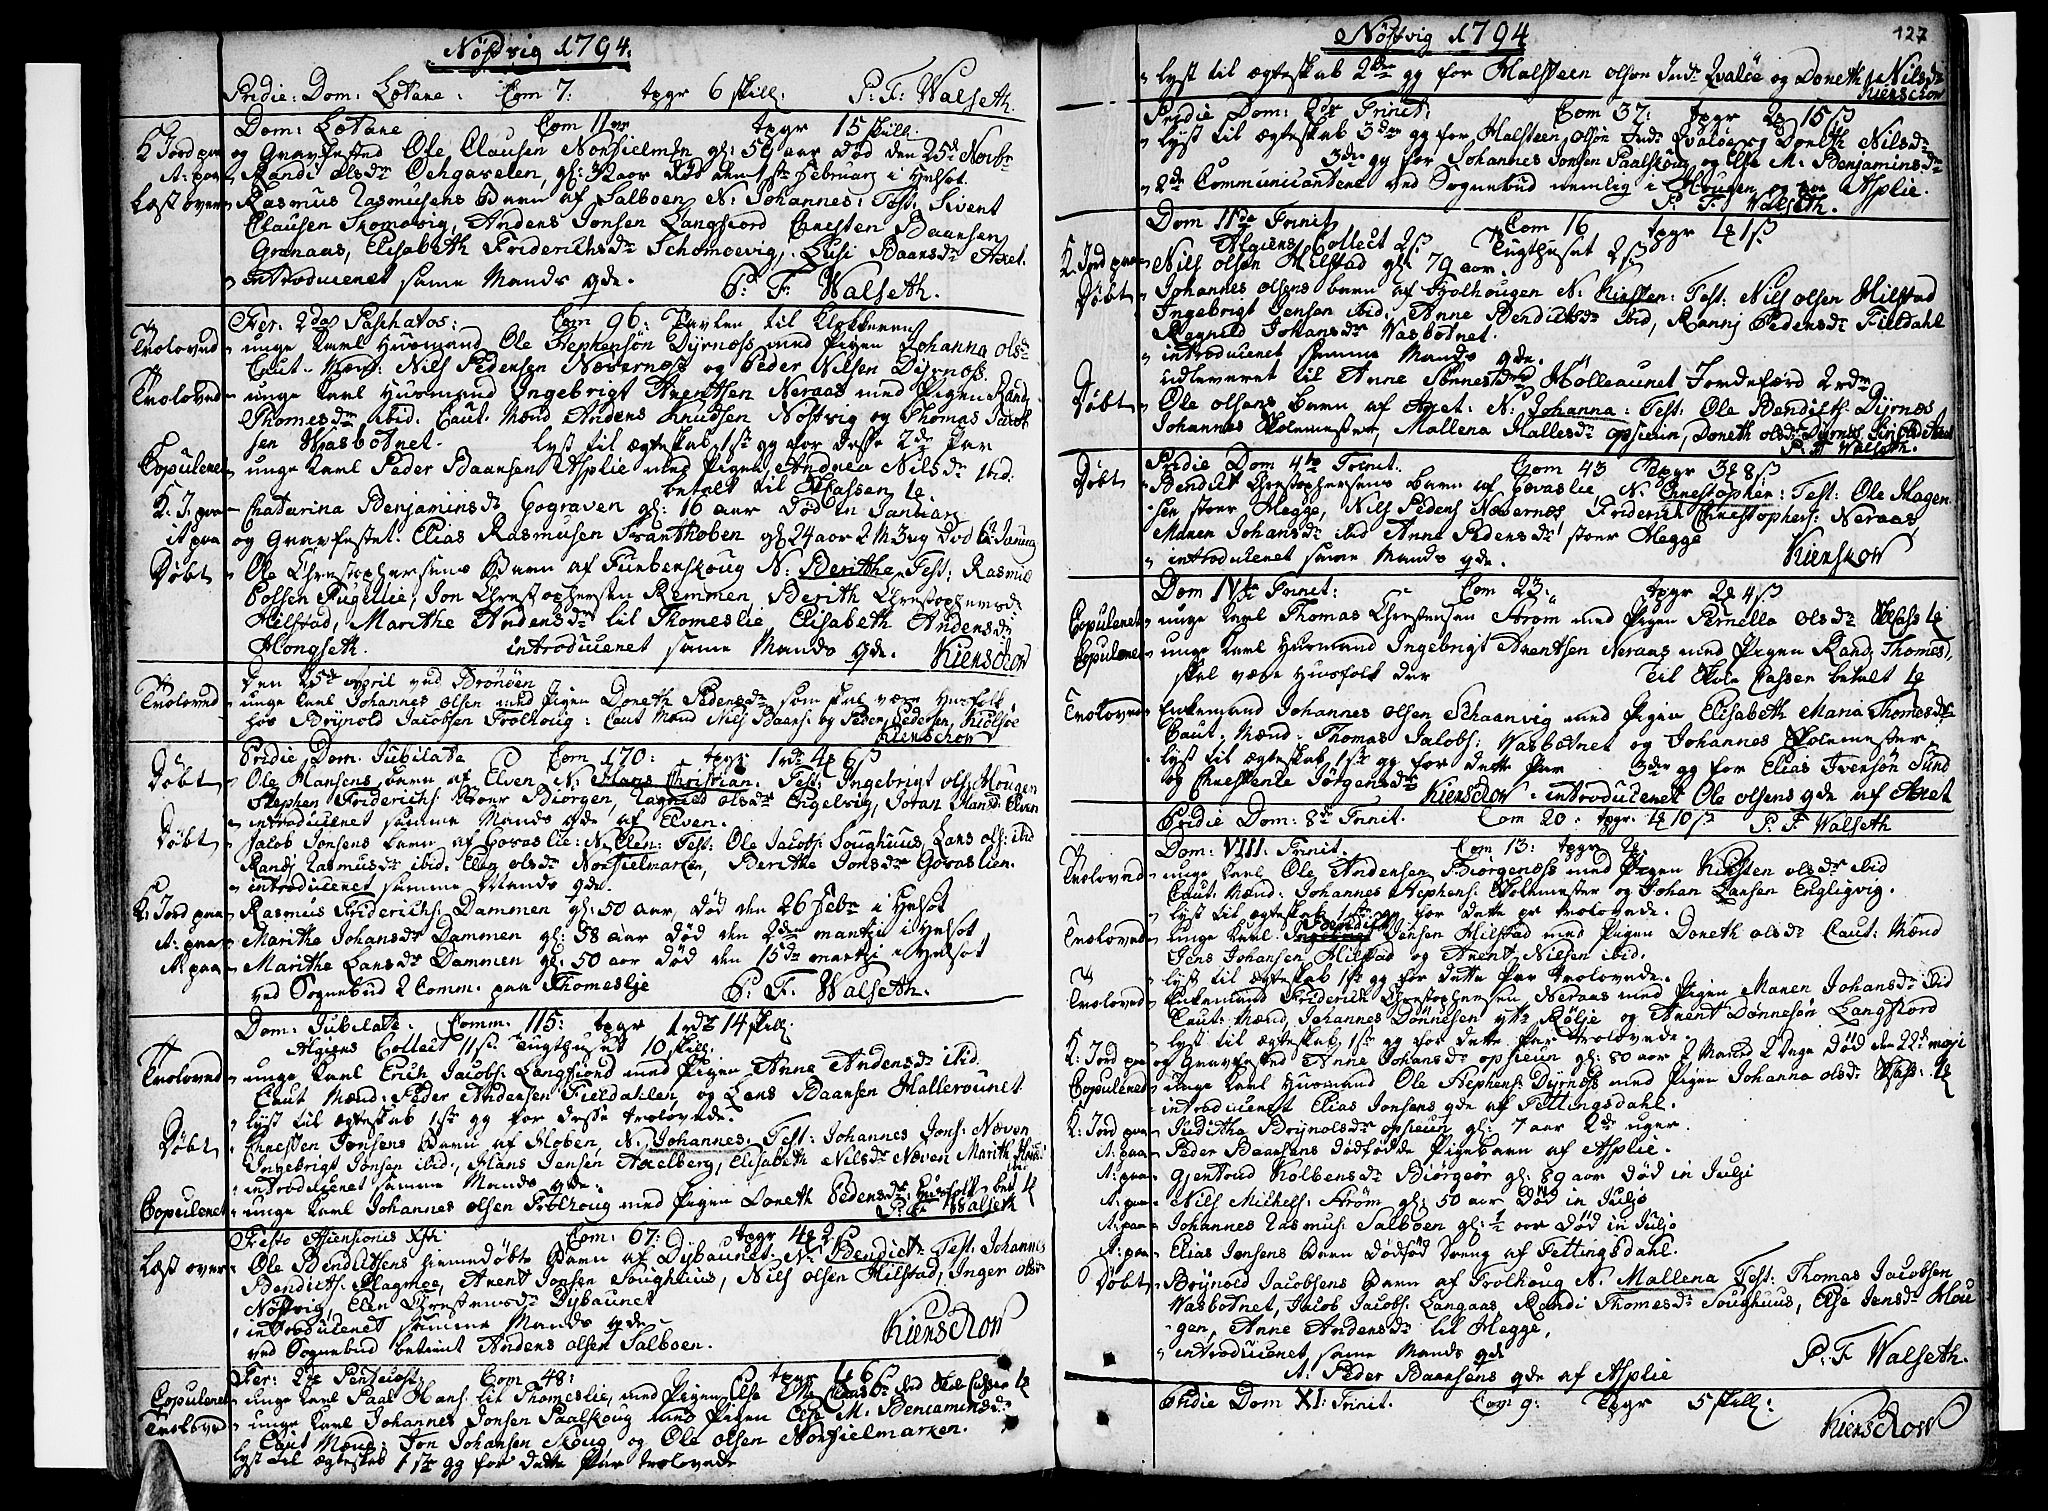 Nöstvig 1794.
Pridie: Dom: Lætare. Com 7: tpgr 6 skill: P: F: Walseth.
Dom: Lætare Com 11 tpgr 15 skill:
K Jord paa og Gravfested Ole Clausen gl: 50 aar død den 25de Novbr
A: paa Randi olsdr gl: aar død den 1ste Februarj i Helset.
Læst over Rasmus Rasmusens Barn af Salboen N: Johannes: Test: Sivent
Clausen Skomovig, Anders Jonsen Langfiord Christen Baansen
Grønaas, Elisabeth Friderichsdr Schomoevig, Lusi Baansdr Axet.
introduceret samme Mands qde. P: F: Walseth.
Fer: 2das Paschatos: Com 96: Tavlen til Klokkeren
Troloved unge karl Huusmand Ole Stephensøn Dyrnæss med Pigen Johanna olsdr
Caut. Mænd: Nils Pedersen Næver­næss og Peder Nilsen Dyrnæs.
Troloved unge karl Huusmand Ingebrigt Arentsen Neraas med Pigen Randj
Thomesdr ibid. Caut. Mænd Anders Knudsen Nöstvig og Thomas Jacob
sen Wasbotnet. lyst til ægteskab 1ste gg for disse 2de Par
Copuleret unge karl Peder Baansen Asplie med Pigen Andrea Nilsdr ibid.
betalt til Cassen
K. J. paa Chatarina Benjaminsdr Gograven gl: 16 aar død in Januarj
it paa og Gravfestet. Elias Rasmusen gl 24 aar 2 M 3 ug død
Døbt Ole Christophersens Barn af Furbenskoug N: Berithe, Test: Rasmus
olsen Fuglelie, Jon Christophersen Remmen Berith Christophersdr
Hilstad, Marithe Andersdr lil Thomeslie, Elisabeth Andersdr
Hongseth. introduceret samme Mands qde. Kierschow
den 25de April ved Brönöen
Trolovet unge karl Johannes olsen med Pigen Doreth Pedersdr som skal være Huusfolk
hos Brynold Jacobsen Trolhoug: Caut Mænd Niels Baans: og Peder Pedersen,
Kierschow
Pridie Dom. Jubilate Com 170: tpgr 1rd 4 6
Døbt Ole Hansens barn af Elven N: Hans Christian. Test: Ingebrigt ols: Hougen
Stephen Friderichs: Biørgen, Ragnild olsdr Engelvig, Joran Hansd: Elven
introduceret samme Mands qde af Elven.
Døbt Jacob Jonsens barn af Govaslie: N: Elen: Test: Ole Jacobs: Soughuus, Lars ols: ibid
Randj Rasmusdr ibid: Elen olsdr Norfielmarken, Berithe Jonsdr Govaslien.
introduceret samme Mands qde.
K: Jord paa Rasmus Friderichs: Dammen gl: 50 aar, død den 26 Febr i Helset
A: paa Marithe Johansdr Dammen gl: 58 aar død den 2de martzi i Helset
A: paa Marithe Larsdr Dammen gl: 50 aar død den 15de martzi i Helset
ved Sognebud 2 Comm. paa Thomeslje P: F: Walseth.
Dom: Jubilate. Comm. 115: tpgr 1rdr 14 skill.
Algiers Collect 11 Tugthuset 10 skill:
Trolovet unge karl Erich Jacobs: Langfiord med Pigen Anne Andersdr ibid.
Caut Mænd: Peder Andersen Fieldahlen og Lars Baansen Hallerounet
lyst til ægteskab 1ste gg for disse trolovede.
Døbt Christen Jonsens Barn af Floben, N: Johannes: Test: Johannes Jons: Næven
Ingebrigt Jonsen ibid:, Hans Jensen Axelberg, Elisabeth Nilsdr Næven Marith
introduceret samme Mands qde.
Copuleret unge karl Johannes olsen Trolhoug med Pigen Doreth Pedersdr
P: F: Walseth
Festo Ascensionis Xsti Com: 67: tpgr 4 2
Læst over Ole Bendictsens hiemmedøbte Barn af Dybaunet: N: Bendict: Test: Johannes
Bendicths: Plagmoe, Arent Jonsen Soughuus, Nils olsen Hilstad, Inger olsdr
Nöstvig, Elen Christensdr Dybaunet
introduceret samme Mands qde Kierschow
ved Sognebud betient Anders olsen Salboen.
Fer: 2da Pentecost: Com 48: tpgr
Copuleret unge karl Paal Hans: lit Thomeslie, med Pigen Else
Trolovet unge karl Johannes Jonsen Paalskoug med Pigen Else M. Benjaminsdr
Caut Mænd: Jon Johansen Skoug, og Ole olsen Norfielmarken.
lyst til ægteskab 1ste gg for dette Par trolovede
Nöstvig 1794
127
lyst til ægteskab 2den gg for Halsteen olsen Indr Qvalöe og Doreth Nilsdr
Kierschow
Pridie Dom: 2da Trinit: Com 37: tpgr 2 15
lyst til ægteskab 3de gg for Halsteen olsøn Indr Qvalöe og Doreth Nilsdr
3de gg for Johannes Jonsen Paalskoug og Else M: Benjaminsdr
2de Communicantere ved Sognebud nemlig i Hougen og paa Asplie.
P. F: Walseth.
Dom 11da Trinit: Com 16 tpgr 1 1
Algiers Collect 2 Tugthuset 2
K: Jord paa Nils olsen Hilstad gl: 79 aar.
Døbt Johannes olsens barn af Holhougen N: Kirsten: Test: Nils olsen Hilstad
Ingebrigt Jensen ibid: Anne Bendictsdr ibid, Rannj Pedersdr Fieldahl
Ragnild Johansdr Wasbotnet.
introduceret samme Mands qde.
udleveret til Anne Hölleaunet Jordefærd 2rdr
Døbt Ole olsens barn af Axet: N: Johanna: Test: Ole Bendicth: Dyrnæs
Johannes Skolemester, Mallena Hallesdr opsieun, Doreth olsdr Dyrnes
P: F: Walseth.
Pridie Dom 4to Trinit. Com 43 tpgr 3 8
Døbt Bendict Christophersens barn af Govaslie N: Christopher: Test: Ole Hagen
sen stoer Hegge, Nils Peders Nævernæs Friderich Christophers: Neraas
Maren Johansdr ibid Anne Pedersdr stoer Hegge
introduceret samme Mands qde. Kierschow
Dom IVta Trinit: Com 23: tpgr 2 4
Copuleret unge karl Thomas Christensen Strøm med Pigen Pernella olsdr
Copuleret unge karl Huusmand Ingebrigt Arentsen Neraas med Pigen Randj Thomesdr
skal være Huusfolk der Til Skole Cassen betalt
Trolovet Enkemand Johannes olsen Schaanvig med Pigen Elisabeth Maria Thomesdr
Caut: Mænd: Thomas Jacobs: Wasbotnet og Johannes Skolemester.
lyst til ægteskab 1ste gg for dette Par 3de gg for Elias Iversøn Sund
og Christente Jørgensdr Kierschow introduceret Ole olsens qde af Axet
Pridie Dom: 8de Trinit. Com 20: tpgr: 1 10 P: F: Walseth
Dom: VIII: Trinit. Com 13: tpgr 2
Trolovet unge karl Ole Andersen Biørgenæss med Pigen Kirsten olsdr ibid
Caut: Mænd: Johannes Stephens: Skolemester og Johan Larsen Engligvig.
lyst til ægteskab 1ste gg for dette pr trolovede.
Trolovet unge karl Jensen Hilstad med Pigen Doreth olsdr Caut: Mænd
Jens Johansen Hilstad og Arent Nilsen ibid.
lyst til ægteskab 1ste gg for dette Par trolovede.
Trolovet Enkemand Friderich Christophersen Neraas med Pigen Maren Johansdr ibid
Caut: Mænd Johannes Dønnesen og Arent Dønnesøn Langfiord
lyst til ægteskab 1ste gg for dette Par trolovede.
K: Jord paa og Gravfested Anne Johansdr opsieun gl: 80 aar 2 Maand 2 uge død den 22de maji
Copuleret unge karl Huusmand Ole Stephens: Dyrnæss med Pigen Johanna olsdr
introduceret Elias Jonsens qde af Fettingsdahl.
K: Jord paa Fuditha Brynolsdr opsieun gl: 7 aar 2de uger.
A: paa Peder Baansens dødfødde Pigebarn af Asplie.
A: paa Gjertrud Kolbensdr Biørgeør gl: 89 aar død in Julji
A: paa Nils Mikkels: Strøm gl: 50 aar død in Julji
A: paa Johannes Rasmus: Salboen gl: ½ aar død in Julji
A: paa Elias Jonsens Barn dødfød Dreng af Fettingsdahl.
Døbt Brynold Jacobsens barn af Trolhoug N: Mallena Test: Thomas Jacobsen
Wasbotnet, Jacob Jacobs: Langaas, Randi Thomesdr Soughuus, Else Jensdr Hou
gen, Anne Andersdr lil Hegge,
introduceret samme Mands qde P: F: Walseth.
A: Peder Baansens qde af Asplie
Pridie Dom XI: Trinit. Com 9: tpgr 5 skill:
Kierschow